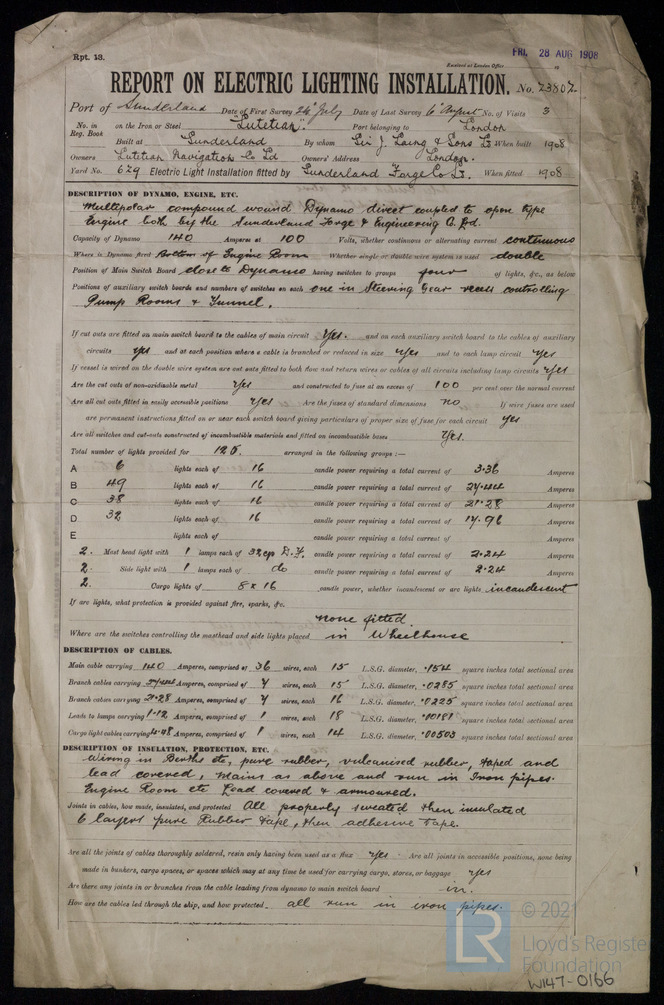 FRI. 28 AUG 1908
Rpt. 13.
Received at London Office
REPORT ON ELECTRIC LIGHTING INSTALLATION. No. 23802
Port of Sunderland Date of First Survey 24th July Date of Last Survey 6th August No. of Visits 3
No. in Reg. Book on the Iron or Steel "Lutetian". Port belonging to London
Built at Sunderland By whom Sir J. Laing & Sons Ld When built 1908
Owners Lutetian Navigation Co Ld Owners' Address London.
Yard No. 629 Electric Light Installation fitted by Sunderland Forge Co Ld. When fitted 1908
DESCRIPTION OF DYNAMO, ENGINE, ETC.
Multipolar compound wound Dynamo direct coupled to open type
Engine both by the Sunderland Forge & Engineering Co. Ltd.
Capacity of Dynamo 140 Amperes at 100 Volts, whether continuous or alternating current continuous
Where is Dynamo fixed Bottom of Engine Room Whether single or double wire system is used double
Position of Main Switch Board close to Dynamo having switches to groups four of lights, &c., as below
Positions of auxiliary switch boards and numbers of switches on each one in Steering Gear recess controlling
Pump Rooms & Tunnel.
If cut outs are fitted on main switch board to the cables of main circuit Yes. and on each auxiliary switch board to the cables of auxiliary
circuits yes and at each position where a cable is branched or reduced in size yes and to each lamp circuit yes
If vessel is wired on the double wire system are cut outs fitted to both flow and return wires or cables of all circuits including lamp circuits yes
Are the cut outs of non-oxidizable metal yes and constructed to fuse at an excess of 100 per cent over the normal current
Are all cut outs fitted in easily accessible positions yes Are the fuses of standard dimensions no If wire fuses are used
are permanent instructions fitted on or near each switch board giving particulars of proper size of fuse for each circuit yes
Are all switches and cut-outs constructed of incombustible materials and fitted on incombustible bases Yes.
Total number of lights provided for 125. arranged in the following groups :—
A 6 lights each of 16 candle power requiring a total current of 3.36 Amperes
B 49 lights each of 16 candle power requiring a total current of 27.44 Amperes
C 38 lights each of 16 candle power requiring a total current of 21.28 Amperes
D 32 lights each of 16 candle power requiring a total current of 17.92 Amperes
E lights each of candle power requiring a total current of Amperes
2. Mast head light with 1 lamps each of 32cp D.F. candle power requiring a total current of 2.24 Amperes
2. Side light with 1 lamps each of do candle power requiring a total current of 2.24 Amperes
2. Cargo lights of 8 x 16 candle power, whether incandescent or arc lights incandescent
If arc lights, what protection is provided against fire, sparks, &c.
none fitted.
Where are the switches controlling the masthead and side lights placed in Wheelhouse
DESCRIPTION OF CABLES.
Main cable carrying 140 Amperes, comprised of 36 wires, each 15 L.S.G. diameter, .154 square inches total sectional area
Branch cables carrying 27.44 Amperes, comprised of 7 wires, each 15 L.S.G. diameter, .0285 square inches total sectional area
Branch cables carrying 21.28 Amperes, comprised of 7 wires, each 16 L.S.G. diameter, .0225 square inches total sectional area
Leads to lamps carrying 1.12 Amperes, comprised of 1 wires, each 18 L.S.G. diameter, .00181 square inches total sectional area
Cargo light cables carrying Amperes, comprised of 1 wires, each 14 L.S.G. diameter, .00503 square inches total sectional area
DESCRIPTION OF INSULATION, PROTECTION, ETC.
Wiring in Berths etc, pure rubber, vulcanised rubber, taped and
lead covered, mains as above and run in Iron pipes.
Engine Room etc Lead covered & armoured.
Joints in cables, how made, insulated, and protected All properly sweated then insulated
6 layers pure Rubber tape, then adhesive tape.
Are all the joints of cables thoroughly soldered, resin only having been used as a flux yes Are all joints in accessible positions, none being
made in bunkers, cargo spaces, or spaces which may at any time be used for carrying cargo, stores, or baggage yes
Are there any joints in or branches from the cable leading from dynamo to main switch board
How are the cables led through the ship, and how protected all run in iron pipes.
LR
© 2021
Lloyd's Register
Foundation
W147-0166